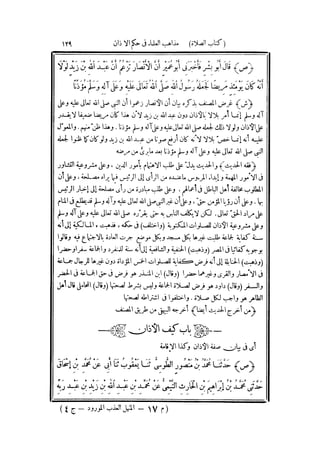 ( كتاب الصلاة )   مذاهب العلماء فى حكم الاذان   ١٢٩
﴿ص﴾ قَالَ أَبُو بِشْرٍ فَأَخْبَرَنِى أَبُو عُمَيْرٍ أَنَّ الْأَنْصَارَ تَزْعُمُ أَنَّ عَبْدَ اللهِ بْنَ زَيْدٍ لَوْلَا
أَنَّهُ كَانَ يَوْمَئِذٍ مَرِيضًا لَجَعَلَهُ رَسُولُ اللهِ صَلَّى اللهُ تَعَالَى عَلَيْهِ وَعَلَى آلِهِ وَسَلَّمَ مُؤَذِّنًا
﴿ش﴾ غرض المصنف بذكره بيان أن الأنصار زعموا أن النبى صلى الله تعالى عليه وعلى
آله وسلم إنما أمر بلالا بالأذان دون عبد الله بن زيد لأن هذا كان مريضا ضعيفا لا يقدر
على الأذان ولولا ذلك لجعله صلى الله تعالى عليه وعلى آله وسلم مؤذنا. وهذا ظن منهم. والمعول
عليه أنه إنما خص بلالا لأنه كان أرفع صوتا من عبد الله بن زيد ولو كان كما ظنوا لجعله
النبى صلى الله تعالى عليه وعلى آله وسلم مؤذنا بعد ما برئ من مرضه
﴿فقه الحديث﴾ والحديث يدل على طلب الاهتمام بأمور الدين. وعلى مشروعية التشاور
فى الأمور المهمة وإبداء المرءوس ما عنده من الرأى إلى الرئيس فيما يراه مصلحة. وعلى أن
المطلوب مخالفة أهل الباطل فى أعمالهم. وعلى طلب مبادرة من رأى مصلحة إلى إخبار الرئيس
بها. وعلى أن رؤيا المؤمن حق. وعلى أن غير النبى صلى الله تعالى عليه وعلى آله وسلم قد يطلع فى المنام
على مراد الحق تعالى. لكن لا يكلف الناس به حتى يقرّره صلى الله تعالى عليه وعلى آله وسلم
وعلى مشروعية الأذان للصلوات المكتوبة (واختلفوا) فى حكمه. فذهبت المالكية إلى أنه
سنة كفاية لجماعة طلبت غيرها بكل مسجد وبكل موضع جرت العادة بالاجتماع فيه وقالوا
بوجوبه كفائيا فى المصر (وذهبت) الحنفية والشافعية إلى أنه سنة للمنفرد والجماعة سفرا وحضرا
(وذهبت) الحنابلة إلى أنه فرض كفاية للصلوات الخمس المؤداة دون غيرها للرجال جماعة
فى الأمصار والقرى وغيرهما حضرا (وقال) ابن المنذر هو فرض فى حق الجماعة فى الحضر
والسفر (وقال) داود هو فرض لصلاة الجماعة وليس بشرط لصحتها (وقال) المحاملى قال أهل
الظاهر هو واجب لكل صلاة. واختلفوا فى اشتراطه لصحتها
﴿من أخرج الحديث أيضا﴾ أخرجه البيهقى من طريق المصنف
باب كيف الأذان
أى فى بيان صفة الأذان وكذا الإقامة
﴿ص﴾ حَدَّثَنَا مُحَمَّدُ بْنُ مَنْصُورٍ الطُّوسِىُّ ثَنَا يَعْقُوبُ ثَنَا أَبِى عَنْ مُحَمَّدِ بْنِ إِسْحَاقَ
حَدَّثَنِى مُحَمَّدُ بْنُ إِبْرَاهِيمَ بْنِ الْحَارِثِ التَّيْمِىُّ عَنْ مُحَمَّدِ بْنِ عَبْدِ اللهِ بْنِ زَيْدِ بْنِ عَبْدِ رَبِّهِ
(م ١٧ - المنهل العذب المورود - ج ٤)